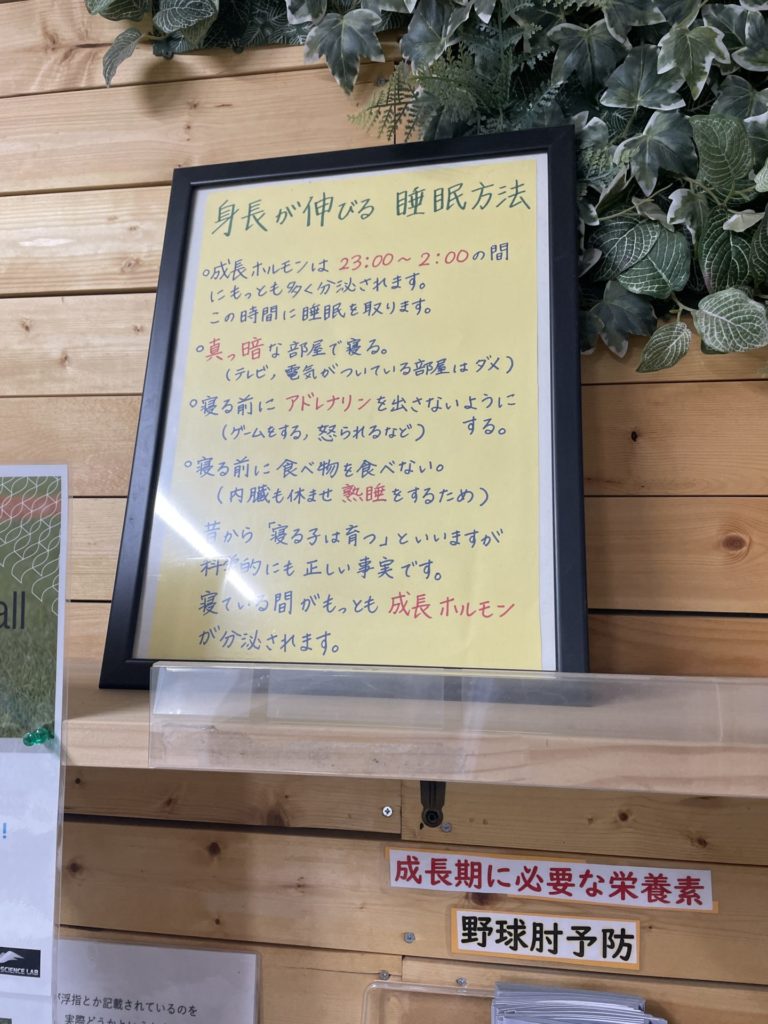 身長が伸びる 睡眠方法
○成長ホルモンは 23:00〜2:00の間
にもっとも多く分泌されます。
この時間に睡眠を取ります。
○真っ暗な部屋で寝る。
(テレビ,電気がついている部屋はダメ)
○寝る前にアドレナリンを出さないように
(ゲームをする,怒られるなど) する。
○寝る前に食べ物を食べない。
(内臓も休ませ 熟睡をするため)
昔から「寝る子は育つ」といいますが
科学的にも正しい事実です。
寝ている間がもっとも 成長ホルモン
が分泌されます。
all
!
SCIENCE LAB
成長期に必要な栄養素
野球肘予防
が浮指とか記載されているのを